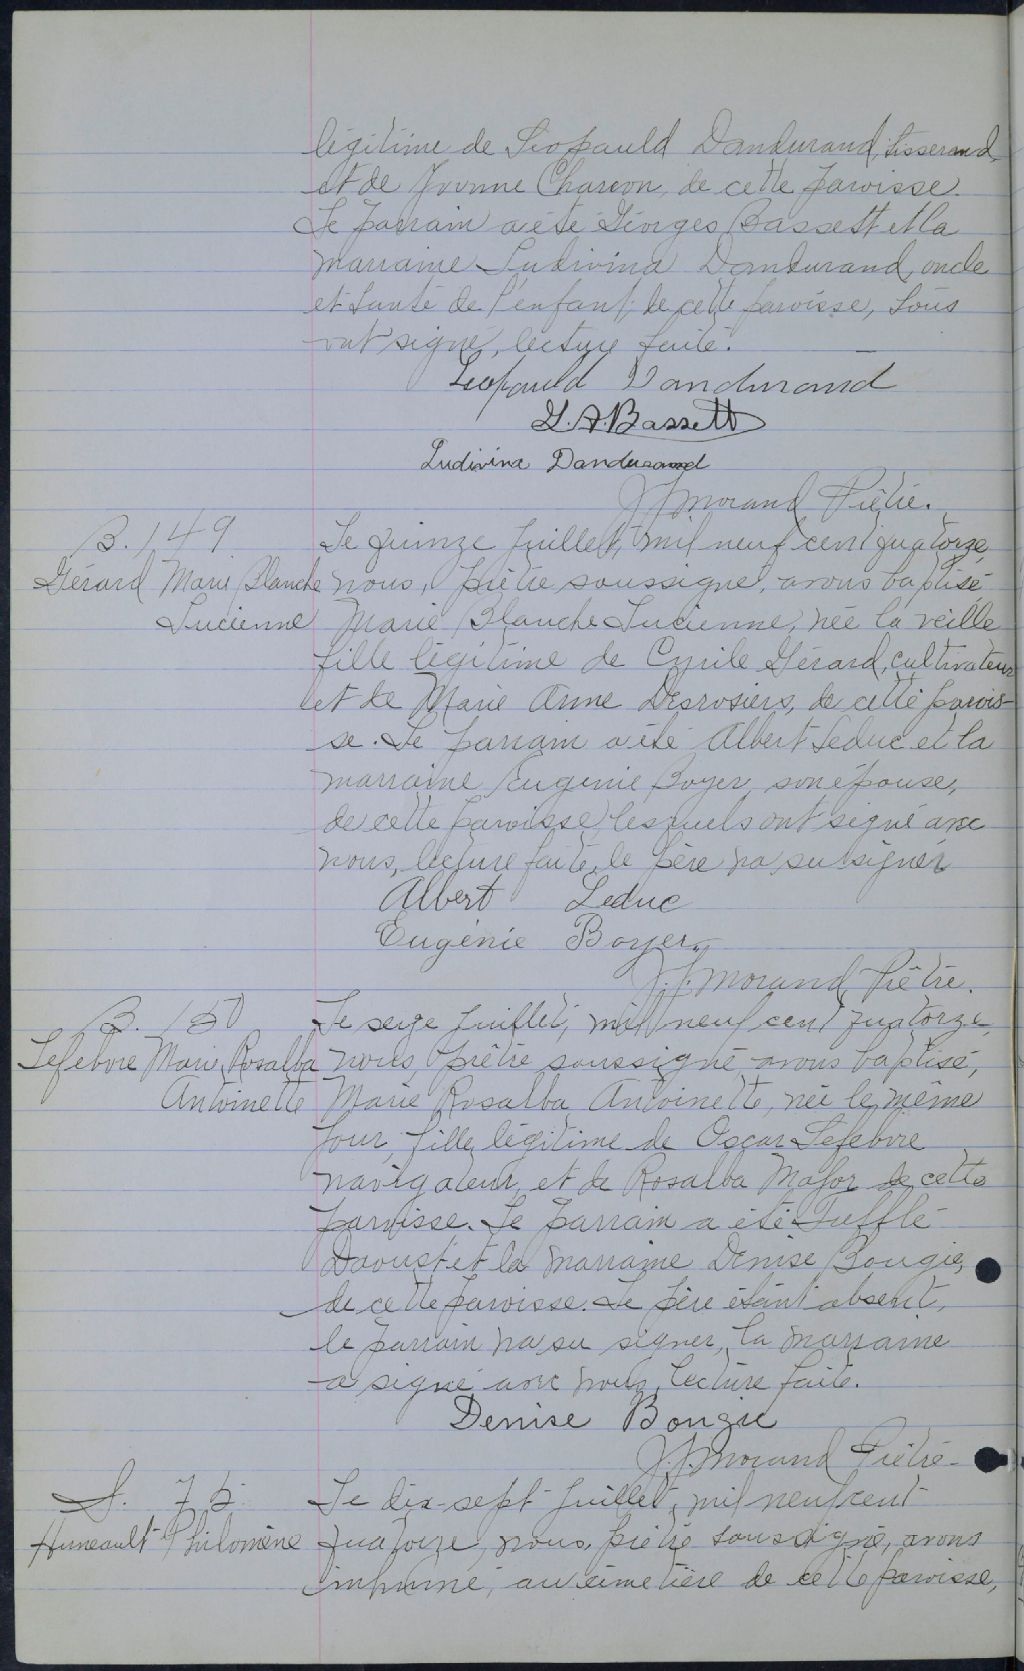 légitime de Léopauld Dandurand, tisserand,
et de Yvonne Charron, de cette paroisse.
Le parrain a été Georges Bassett et la
marraine Ludivina Dandurand, oncle
et tante de l'enfant, de cette paroisse, tous
ont signé, lecture faite.
Leopauld Dandurand
G. A. Bassett
Ludivina Dandurand
J. J. Morand Prêtre.
B. 149
Gérard Marie Blanche
Lucienne
Le quinze juillet, mil neuf cent quatorze,
nous, prêtre soussigné, avons baptisé
Marie Blanche Lucienne, née la veille
fille légitime de Cyrile Gérard, cultivateur
et de Marie Anne Desrosiers, de cette parois-
se. Le parrain a été Albert Leduc et la
marraine Eugenie Boyer, son épouse,
de cette paroisse, lesquels ont signé avec
nous, lecture faite, le père na su signer
Albert Leduc
Eugénie Boyer
J. J. Morand, Prêtre.
B. 150
Lefebvre Marie Rosalba
Antoinette
Le seize juillet, mil neuf cent quatorze,
nous prêtre soussigné avons baptisé,
Marie Rosalba Antoinette, née le même
jour, fille légitime de Oscar Lefebvre
navigateur, et de Rosalba Major de cette
paroisse. Le parrain a été Tufflé
Daoust et la marraine Denise Bougie,
de cette paroisse. Le père étant absent,
le parrain na su signer, la marraine
a signé avec nous, lecture faite.
Denise Bougie
J. J. Morand Prêtre
S. 75
Huneault Philomène
Le dix-sept juillet, mil neuf cent
quatorze, nous, prêtre soussigné, avons
inhumé, au cimetière de cette paroisse,